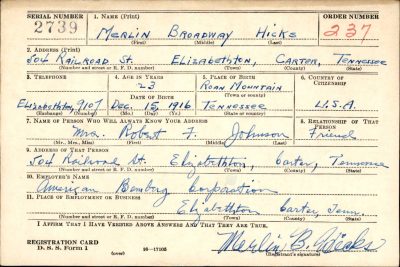 SERIAL NUMBER 1. NAME (Print) ORDER NUMBER
2739 MERLIN BROADWAY HICKS 237
(First) (Middle) (Last)
2. ADDRESS (Print)
504 RAILROAD ST. ELIZABETHTON, CARTER, TENNESSEE
(Number and street or R. F. D. number) (Town) (County) (State)
3. TELEPHONE 4. AGE IN YEARS 5. PLACE OF BIRTH 6. COUNTRY OF CITIZENSHIP
23 ROAN MOUNTAIN
DATE OF BIRTH (Town or county)
Elizabethton, 9107 DEC. 15, 1916 TENNESSEE U.S.A.
(Exchange) (Number) (Mo.) (Day) (Yr.) (State or country)
7. NAME OF PERSON WHO WILL ALWAYS KNOW YOUR ADDRESS 8. RELATIONSHIP OF THAT PERSON
Mrs. Robert F. Johnson Friend
(Mr., Mrs., Miss) (First) (Middle) (Last)
9. ADDRESS OF THAT PERSON
504 Railroad St. Elizabethton, Carter, Tennessee
(Number and street or R. F. D. number) (Town) (County) (State)
10. EMPLOYER'S NAME
American Bemberg Corporation
11. PLACE OF EMPLOYMENT OR BUSINESS
Elizabethton Carter Tenn.
(Number and street or R. F. D. number) (Town) (County) (State)
I AFFIRM THAT I HAVE VERIFIED ABOVE ANSWERS AND THAT THEY ARE TRUE.
REGISTRATION CARD
D. S. S. Form 1 (over) 16—17105 Merlin B. Hicks
(Registrant's signature)